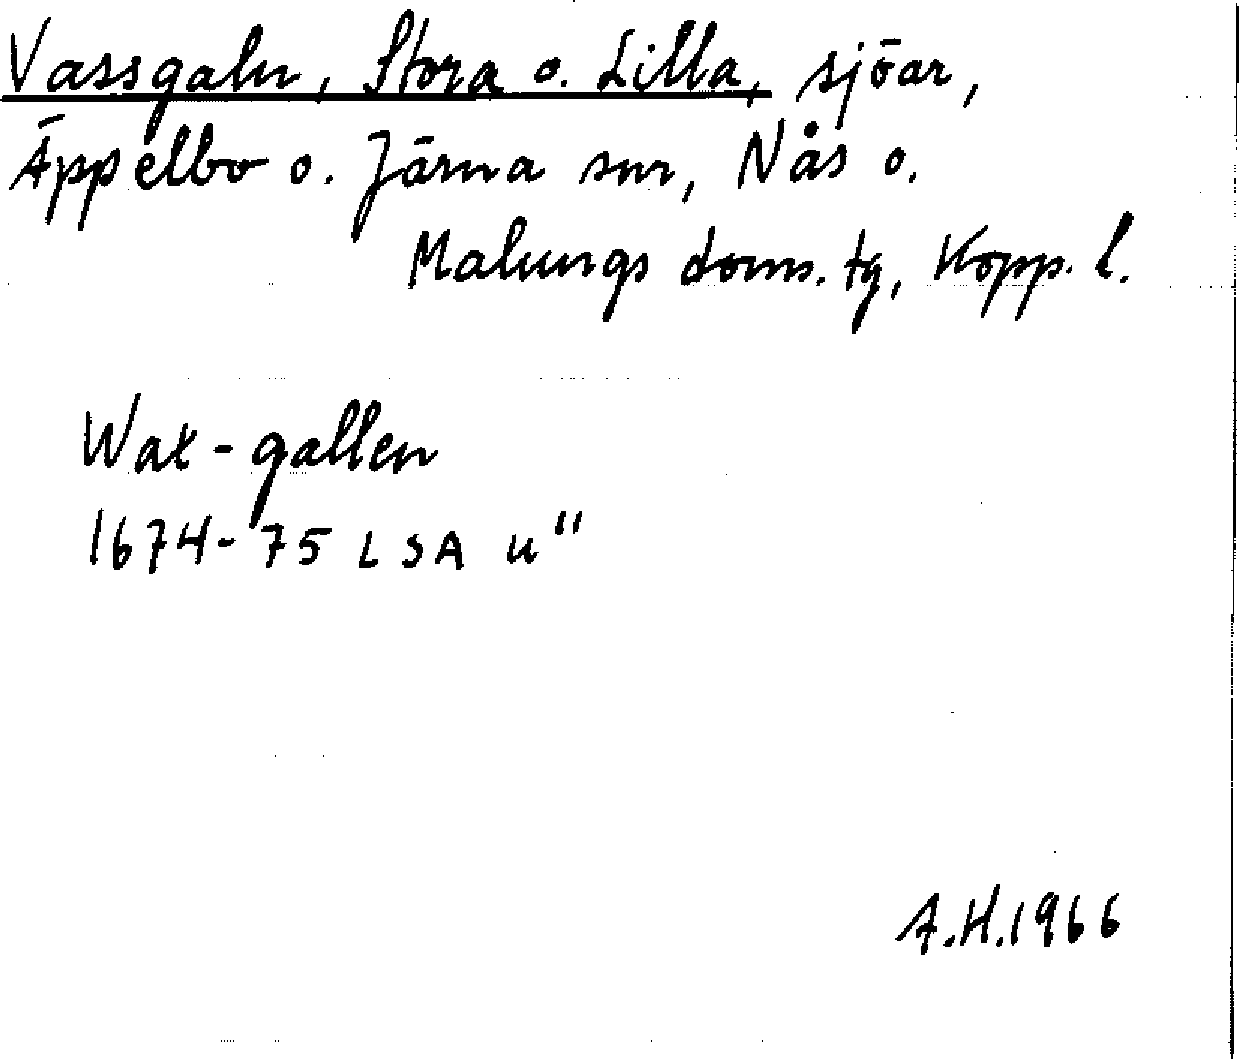 Vassgaln, Stora o. Lilla, sjöar,
Äppelbo o. Järna snr, Nås o.
Malungs doms. tg, Kopp. l.
Wax-gallen
1674-75 LSA u"
A.H.1966